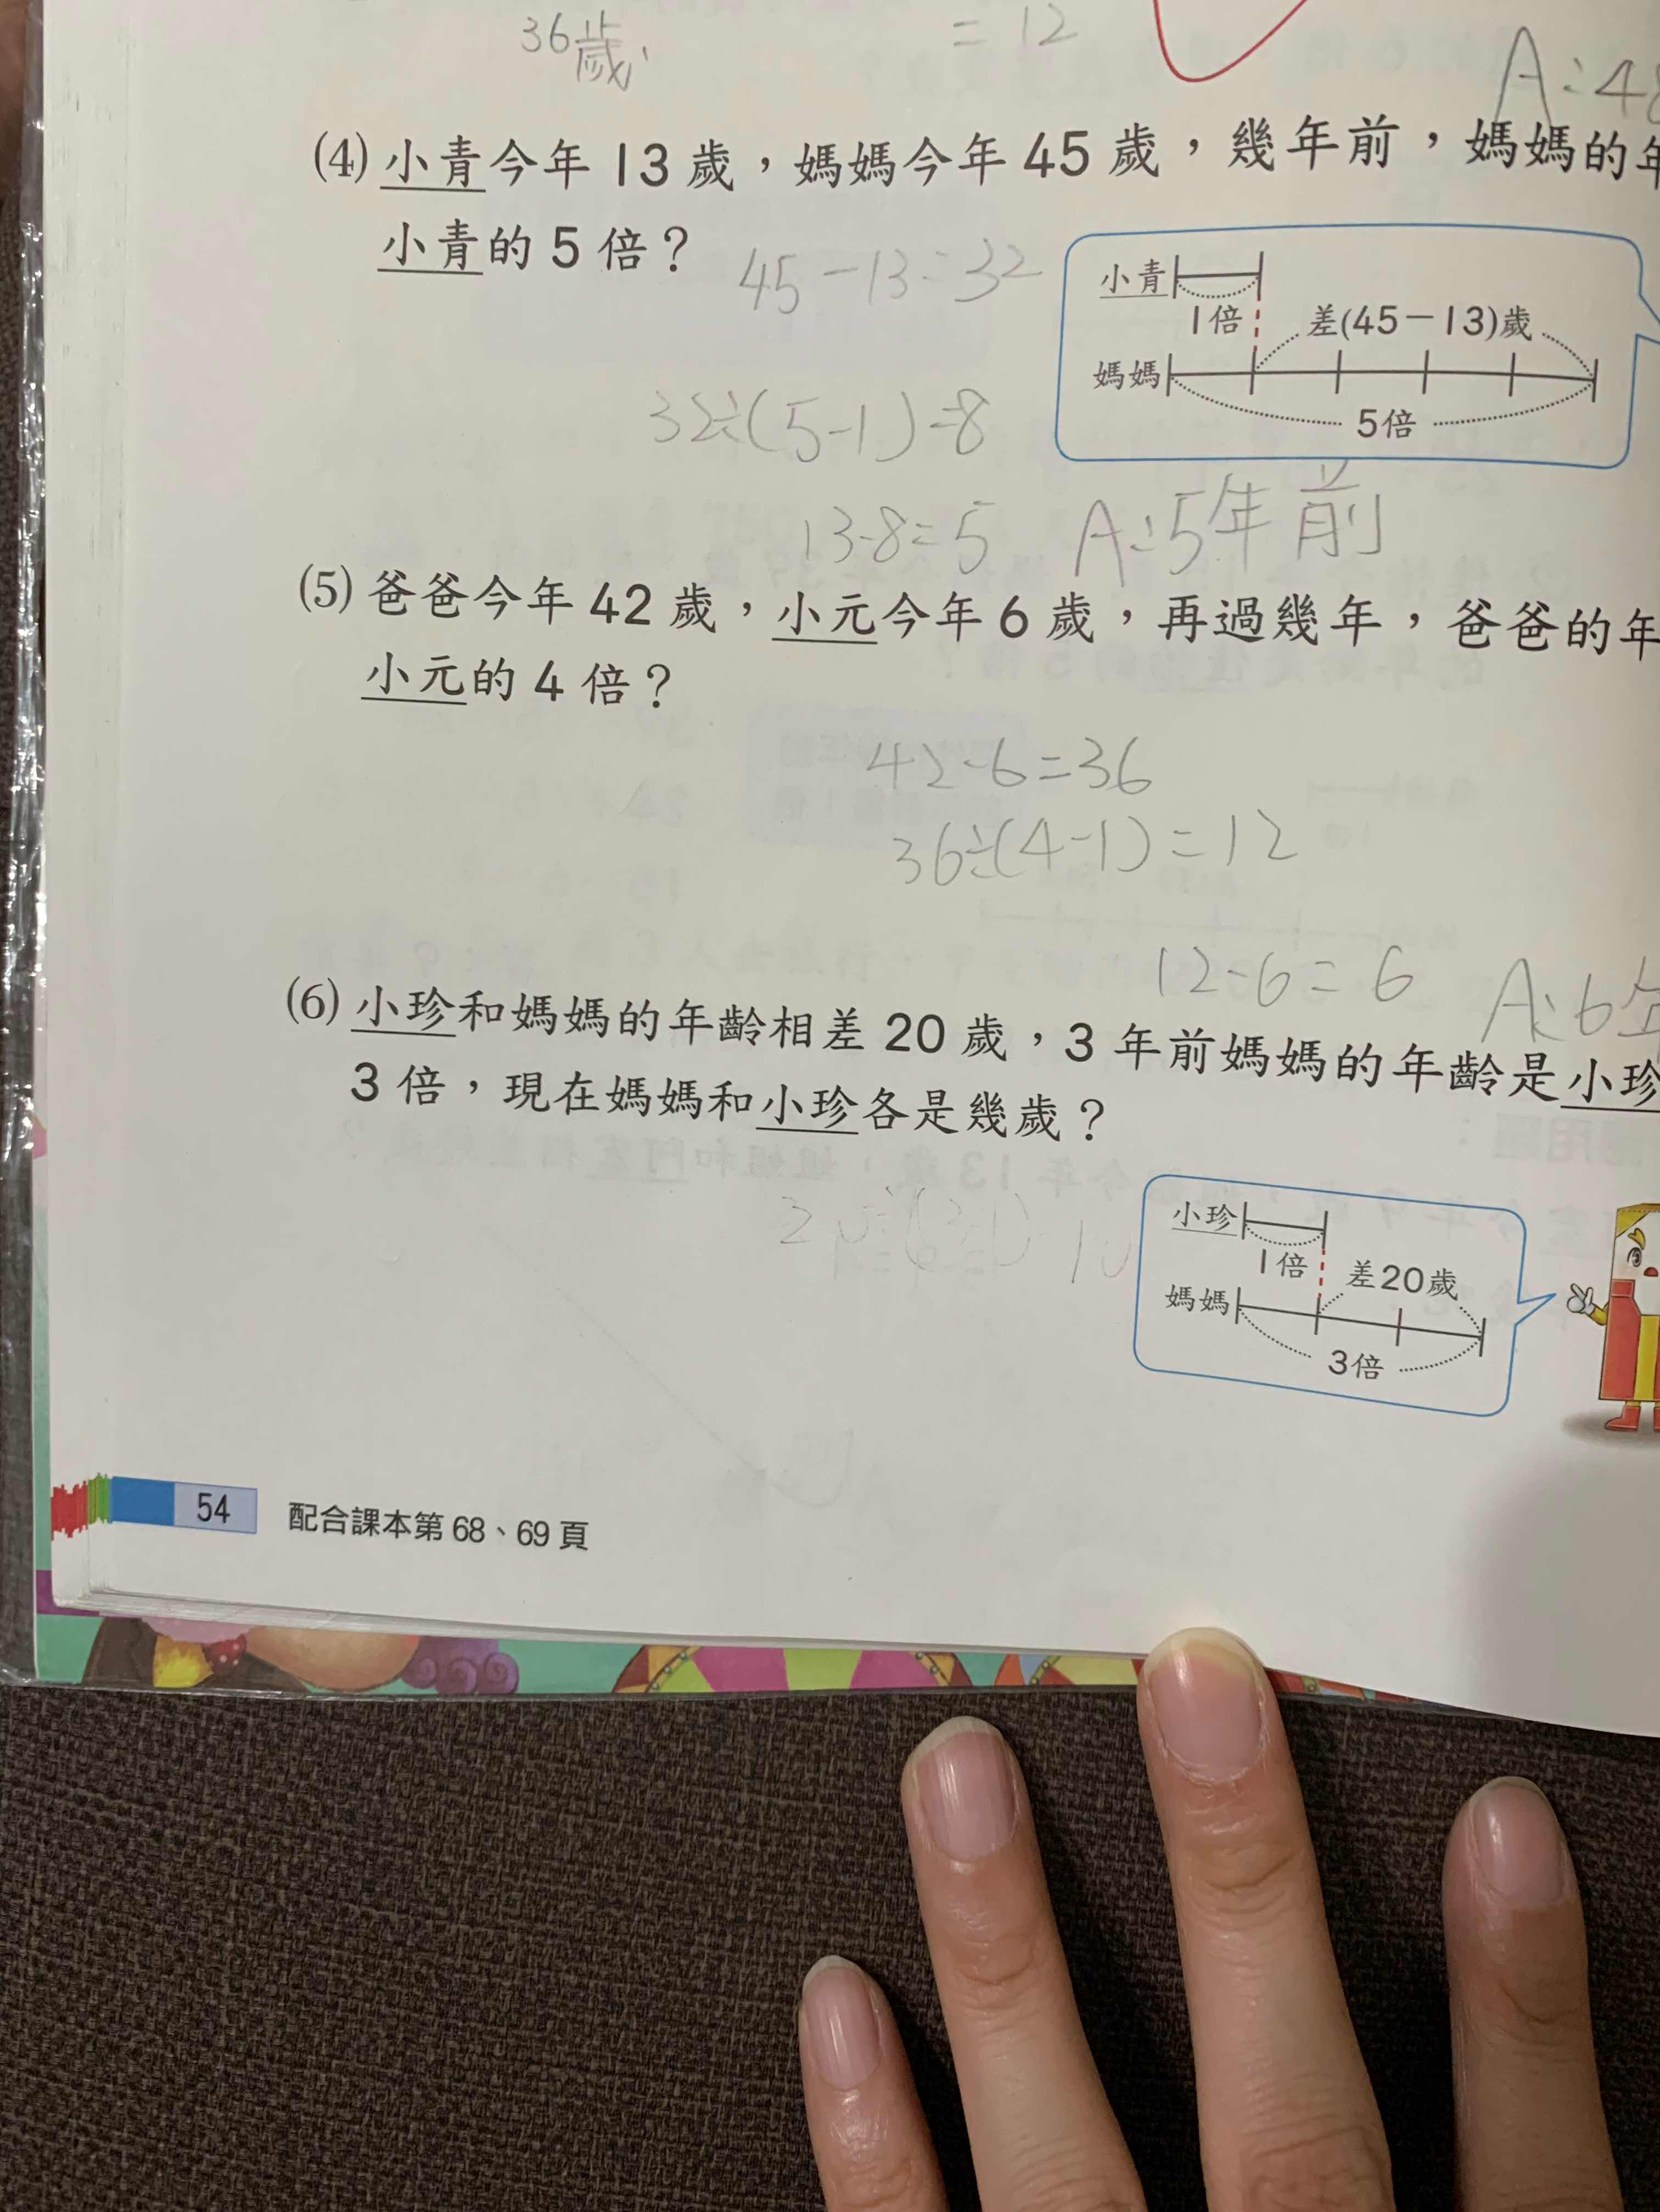 36歲
= 12
A:48
(4) 小青今年 13 歲，媽媽今年 45 歲，幾年前，媽媽的年
小青的 5 倍？
45-13=32
小青
1倍
差(45-13)歲
媽媽
5倍
32÷(5-1)=8
13-8=5 A:5年前
(5) 爸爸今年 42 歲，小元今年 6 歲，再過幾年，爸爸的年
小元的 4 倍？
42-6=36
36÷(4-1)=12
12-6=6 A:6年
(6) 小珍和媽媽的年齡相差 20 歲，3 年前媽媽的年齡是小珍
3 倍，現在媽媽和小珍各是幾歲？
小珍
1倍
差20歲
媽媽
3倍
54 配合課本第 68、69 頁